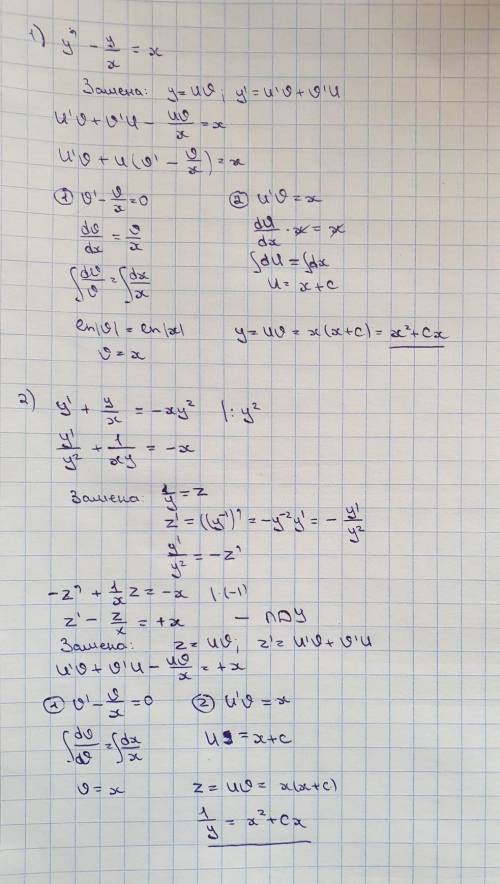 1) y' - y/x = x
Замена: y=uϑ; y'=u'ϑ+ϑ'u
u'ϑ+ϑ'u - uϑ/x = x
u'ϑ+u(ϑ' - ϑ/x) = x
① ϑ' - ϑ/x = 0
dϑ/dx = ϑ/x
∫dϑ/ϑ = ∫dx/x
ln|ϑ| = ln|x|
ϑ = x
② u'ϑ = x
du/dx · x = x
∫du = ∫dx
u = x+c
y=uϑ = x(x+c) = x²+cx
2) y' + y/x = -xy² |: y²
y'/y² + 1/xy = -x
Замена: 1/y = z
z' = ((y⁻¹)' = -y⁻²y' = - y'/y²
y'/y² = -z'
-z' + 1/x z = -x |·(-1)
z' - z/x = +x — ЛДУ
Замена: z = uϑ; z' = u'ϑ+ϑ'u
u'ϑ+ϑ'u - uϑ/x = +x
① ϑ' - ϑ/x = 0
∫dϑ/dϑ = ∫dx/x
ϑ = x
② u'ϑ = x
u = x+c
z = uϑ = x(x+c)
1/y = x²+cx